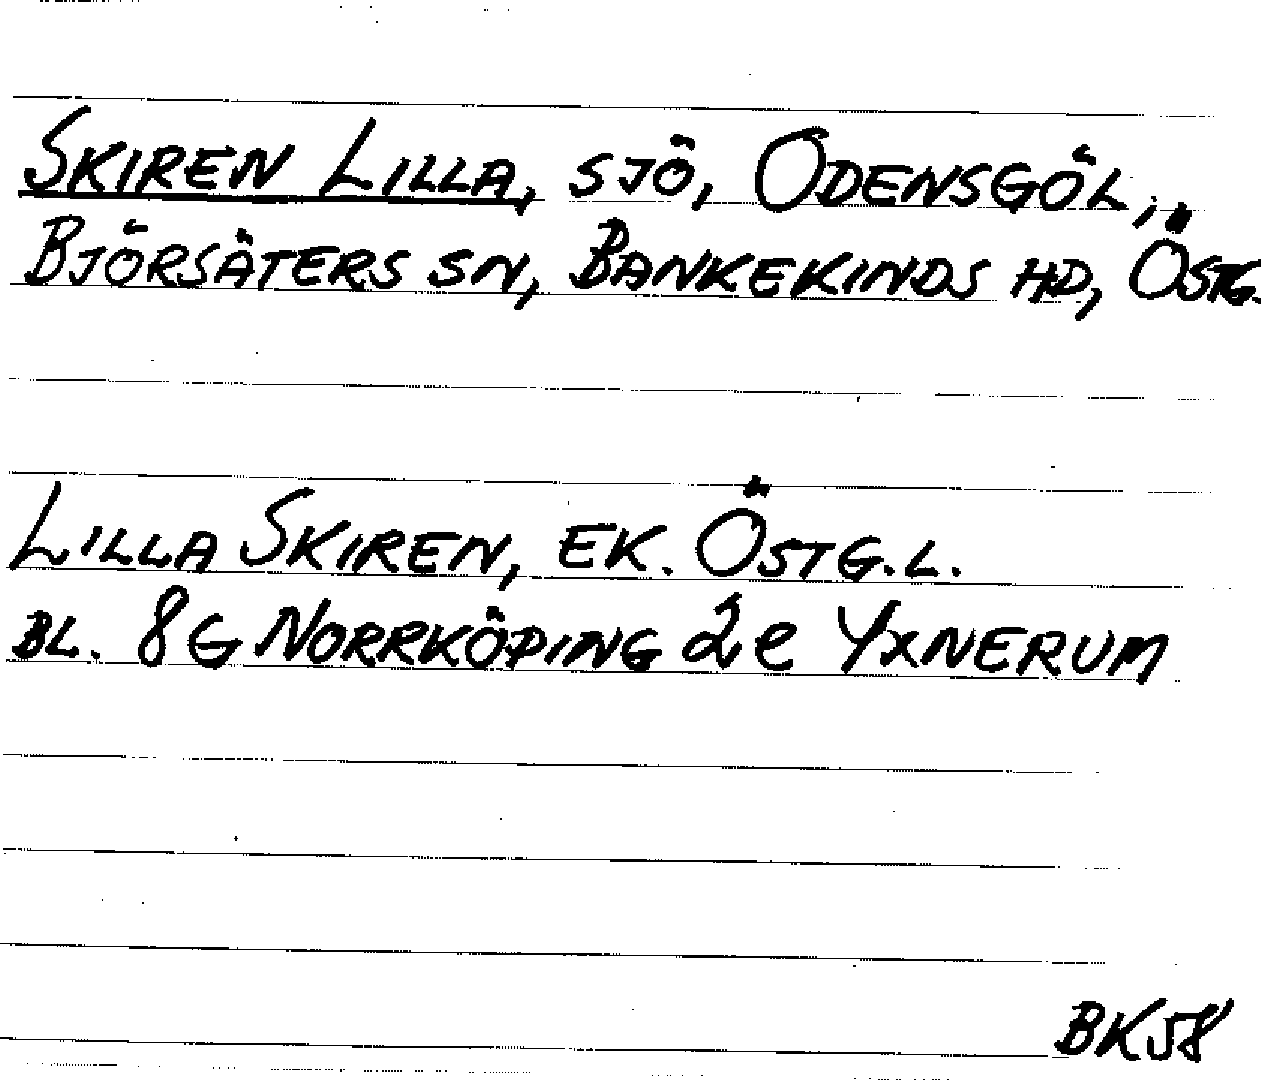 SKIREN LILLA, SJÖ, ODENSGÖL,
BJÖRSÄTERS SN, BANKEKINDS HD, ÖSTG.
LILLA SKIREN, EK. ÖSTG.L.
BL. 8G NORRKÖPING 2e YXNERUM
BK58